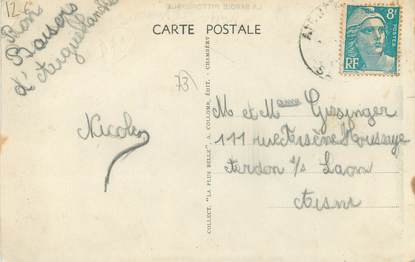 12-6
Bon
Baisers
d'Aigueblanche
CARTE POSTALE
8F
POSTES
RF
73
Nicole
COLLECT. "LA PLUS BELLE" - A. COLLOMB, ÉDIT. - CHAMBÉRY
M et Mme Gissinger
111 rue Arsène Houssaye
Ardon s/s Laon
Aisne